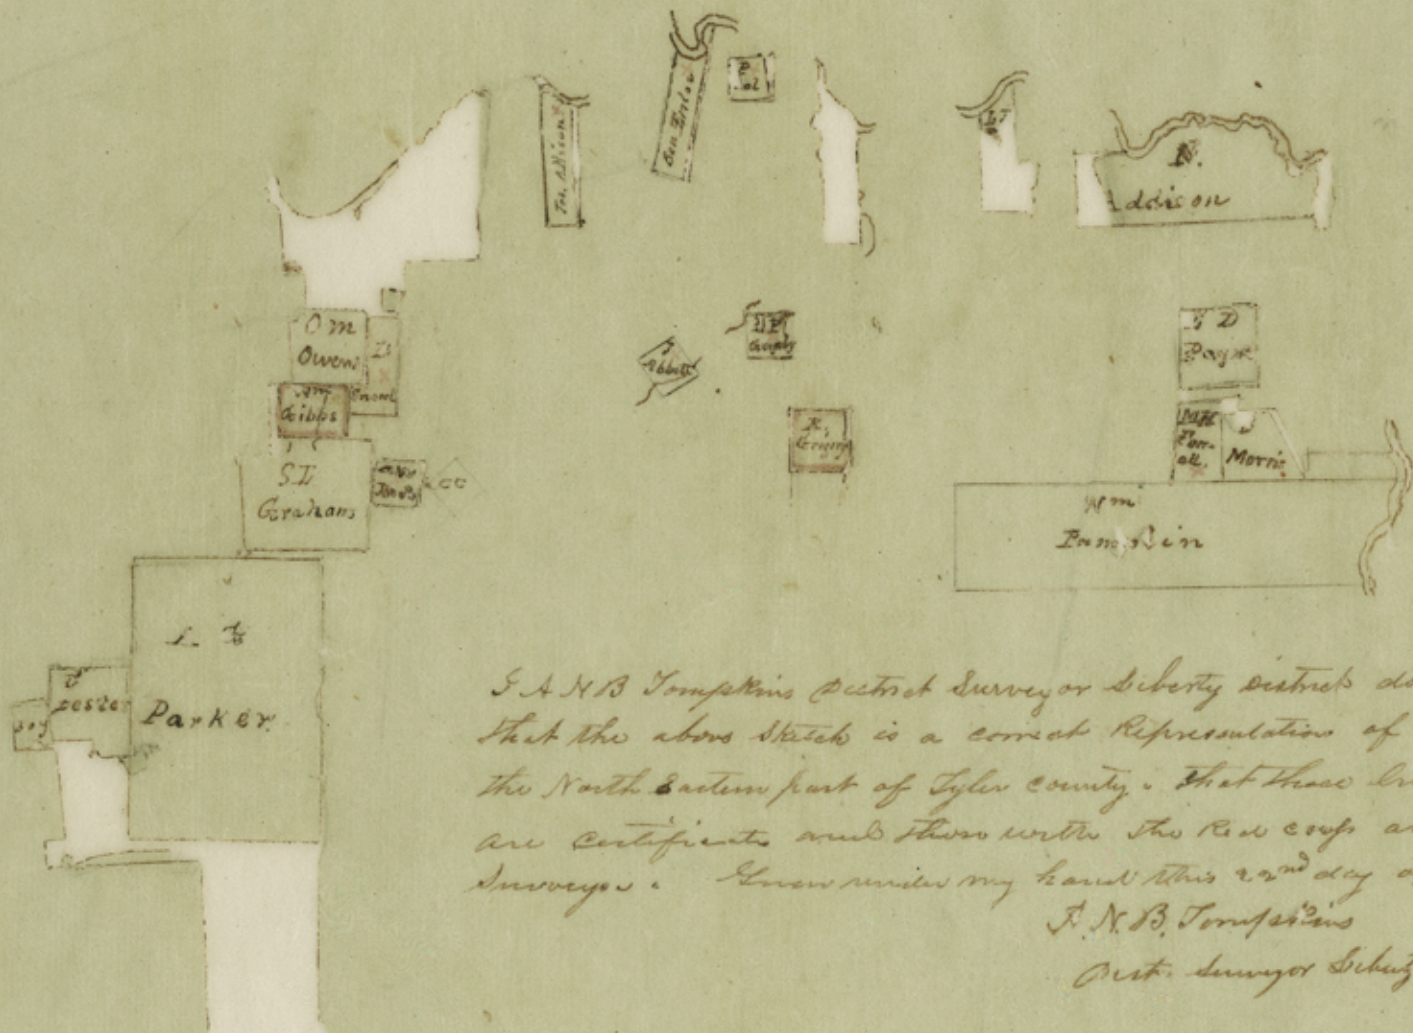 Ben Enloe
Jos. Addison
N.
Addison
O M
Owens
Wm
Gibbs
S L
Grahams
CC
J
Abbott
R.
Grigsby
D
Payne
Morris
Wm
L
Parker
Lester
I A N B Tompkins District Surveyor Liberty District do
that the above Sketch is a correct Representation of
the North Eastern part of Tyler County. that those
are certificate and those with the Red cross
Surveyor. Given under my hand this 22nd day
A. N. B. Tompkins
Dist. Surveyor Liberty